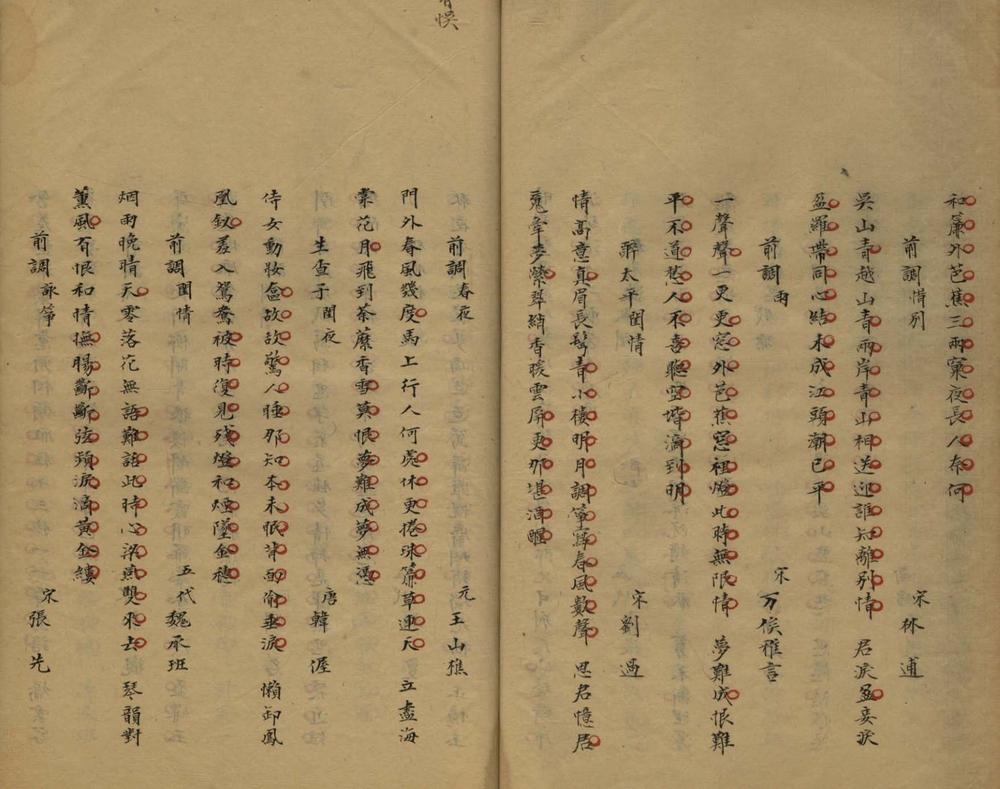 和簾外芭蕉三兩窠夜長人奈何
前調惜別 宋林逋
吳山青越山青兩岸青山相送迎誰知離別情 君淚盈妾淚
盈羅帶同心結未成江頭潮已平
前調雨 宋万俟雅言
一聲聲一更更窓外芭蕉窓裡燈此時無限情 夢難成恨難
平不道愁人不喜聽空堦滴到明
醉太平閨情 宋劉過
情高意真眉長鬢青小樓明月調箏寫春風數聲 思君憶君
䰟牽夢縈翠綃香暖雲屏更那堪酒醒
前調春夜 元王山樵
門外春風幾度馬上行人何處休更捲珠簾草連天 立盡海
棠花月飛到荼蘼香雪莫恨夢難成夢無憑
生查子閨夜 唐韓偓
侍女動妝奩故故驚人睡那知本未眠背面偷垂淚 懶卸鳳
凰釵羞入鴛鴦被時復見殘燈和煙墜金穗
前調閨情 五代魏承班
烟雨晚晴天零落花無語難話此時心梁燕雙來去 琴韻對
薰風有恨和情撫腸斷斷弦頻淚滴黄金縷
前調詠箏 宋張先
悞